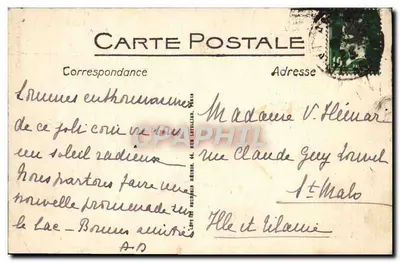 CARTE POSTALE
Correspondance
Adresse
Sommes enthousiasmés
de ce joli coin vu sous
un soleil radieux
Nous partons faire une
nouvelle promenade sur
le lac - Bonnes amitiés
A.D
Madame V. Hémar
rue Claude Guy Louvel
St Malo
Ille et Vilaine
CPAPHIL